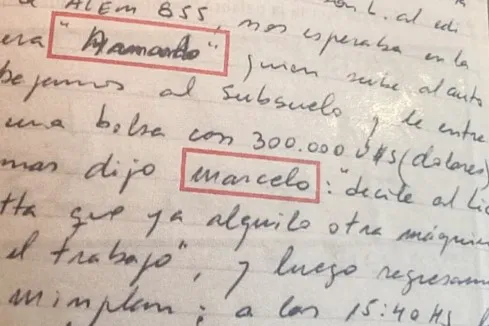 ALEM 855, nos esperaba en la
era "Armando" quien sube al auto
bajamos al subsuelo y le entre
una bolsa con 300.000 U$S (dolares)
mas dijo Marcelo: "decile al Lic
tta que ya alquilo otra máquin
el trabajo", y luego regresam
minplan; a las 15:40 Hs